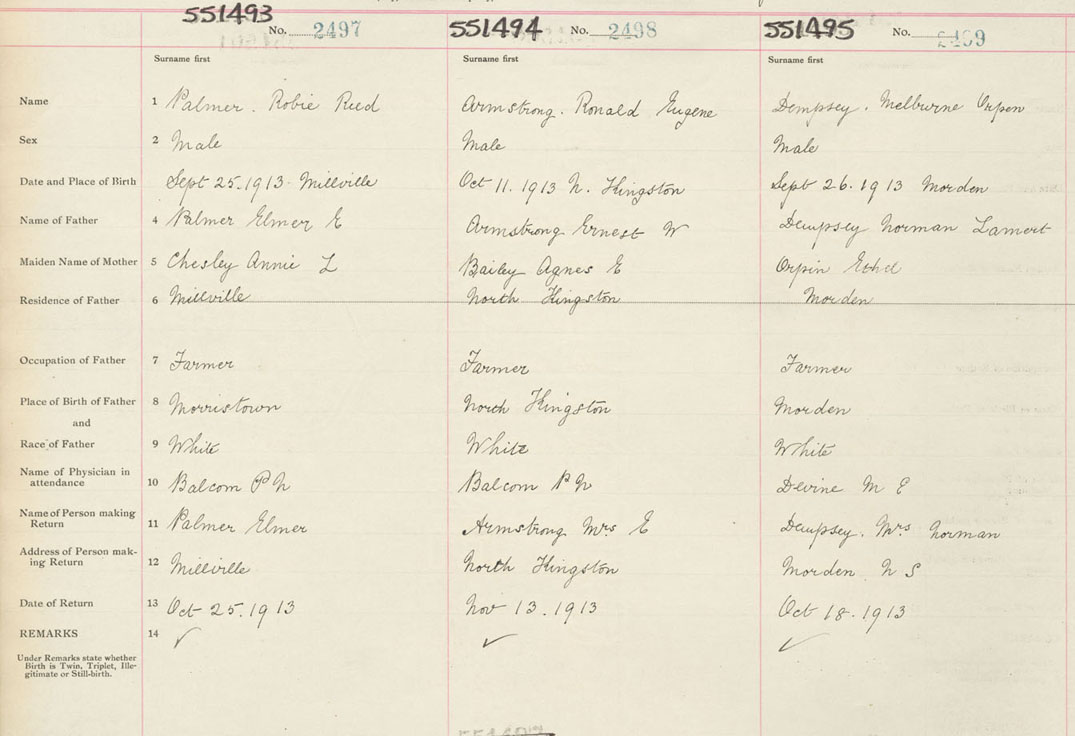 551493 No. 2497 551494 No. 2498 551495 No. 2499
Surname first Surname first Surname first
Name 1 Palmer. Robie Reed Armstrong. Ronald Eugene Dempsey. Melburne Orpen
Sex 2 Male Male Male
Date and Place of Birth Sept 25.1913. Millville Oct 11.1913 N. Kingston Sept 26.1913 Morden
Name of Father 4 Palmer Elmer E Armstrong Ernest W Dempsey Norman Lamert
Maiden Name of Mother 5 Chesley Annie L Bailey Agnes E Orpin Ethel
Residence of Father 6 Millville North Kingston Morden
Occupation of Father 7 Farmer Farmer Farmer
Place of Birth of Father 8 Morristown North Kingston Morden
and
Race of Father 9 White White White
Name of Physician in
attendance 10 Balcom P N Balcom P N Devine M E
Name of Person making
Return 11 Palmer Elmer Armstrong Mrs E Dempsey. Mrs Norman
Address of Person mak-
ing Return 12 Millville North Kingston Morden N S
Date of Return 13 Oct 25.1913 Nov 13.1913 Oct 18.1913
REMARKS 14 ✓ ✓ ✓
Under Remarks state whether
Birth is Twin, Triplet, Ille-
gitimate or Still-birth.